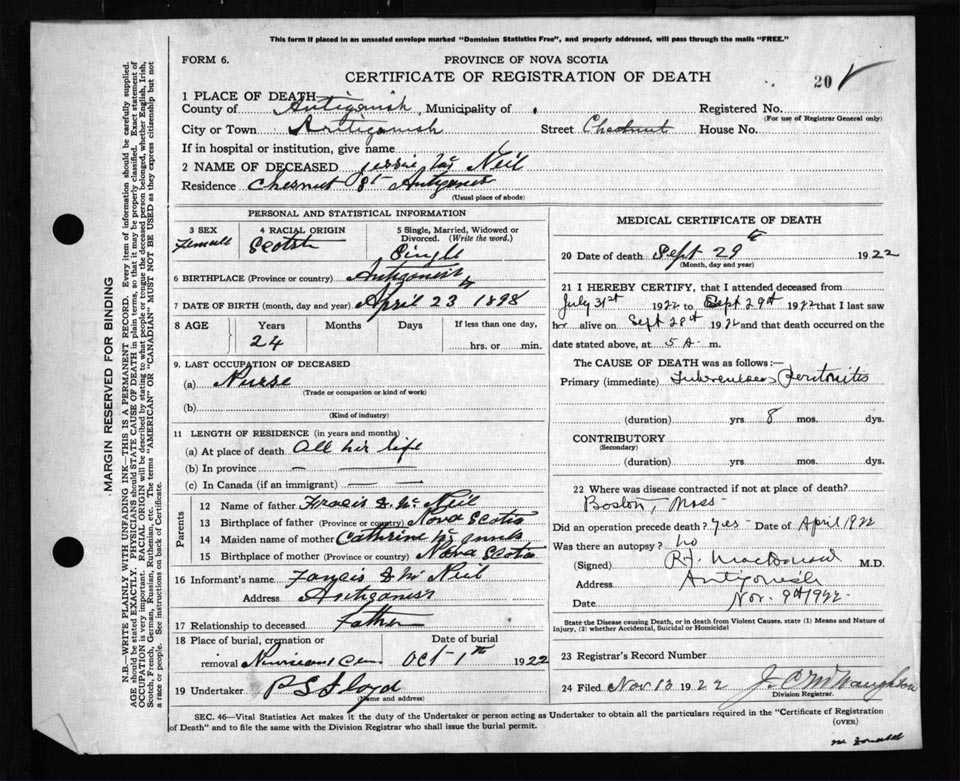 This form if placed in an unsealed envelope marked "Dominion Statistics Free", and properly addressed, will pass through the mails "FREE."
FORM 6.
PROVINCE OF NOVA SCOTIA
CERTIFICATE OF REGISTRATION OF DEATH
20
1 PLACE OF DEATH
County of Antigonish, Municipality of
Registered No.
(For use of Registrar General only)
City or Town Antigonish Street Chestnut House No.
If in hospital or institution, give name
2 NAME OF DECEASED Jessie Mc Neil
Residence Chesnut St Antigonish
(Usual place of abode)
PERSONAL AND STATISTICAL INFORMATION
3 SEX
Female
4 RACIAL ORIGIN
Scotch
5 Single, Married, Widowed or Divorced. (Write the word.)
Single
6 BIRTHPLACE (Province or country) Antigonish
7 DATE OF BIRTH (month, day and year) April 23 1898
8 AGE Years Months Days If less than one day,
24 hrs. or min.
9. LAST OCCUPATION OF DECEASED
(a) Nurse
(Trade or occupation or kind of work)
(b)
(Kind of industry)
11 LENGTH OF RESIDENCE (in years and months)
(a) At place of death All her life
(b) In province —
(c) In Canada (if an immigrant) —
Parents
12 Name of father Francis Mc Neil
13 Birthplace of father (Province or country) Nova Scotia
14 Maiden name of mother Cathrine Mc Innis
15 Birthplace of mother (Province or country) Nova Scotia
16 Informant's name Francis Mc Neil
Address Antigonish
17 Relationship to deceased Father
18 Place of burial, cremation or removal Cem
Date of burial
Oct 1st 1922
19 Undertaker P S Floyd
(Name and address)
MEDICAL CERTIFICATE OF DEATH
20 Date of death Sept 29th 1922
(Month, day and year)
21 I HEREBY CERTIFY, that I attended deceased from
July 31st 1922 to Sept 29th 1922 that I last saw
her alive on Sept 28th 1922 and that death occurred on the
date stated above, at 5 A. m.
The CAUSE OF DEATH was as follows:—
Primary (immediate) Tuberculous Peritonitis
(duration) yrs. 8 mos. dys.
CONTRIBUTORY
(Secondary)
(duration) yrs. mos. dys.
22 Where was disease contracted if not at place of death?
Boston, Mass
Did an operation precede death? Yes - Date of April 1922
Was there an autopsy? No
(Signed) MacDonald M.D.
Address Antigonish
Date Nov. 9th 1922.
State the Disease causing Death, or in death from Violent Causes, state (1) Means and Nature of Injury, (2) whether Accidental, Suicidal or Homicidal
23 Registrar's Record Number
24 Filed Nov 13 1922 J. C McNaughton
Division Registrar.
SEC. 46—Vital Statistics Act makes it the duty of the Undertaker or person acting as Undertaker to obtain all the particulars required in the "Certificate of Registration
of Death" and to file the same with the Division Registrar who shall issue the burial permit.
(OVER)
MARGIN RESERVED FOR BINDING
N.B.—WRITE PLAINLY WITH UNFADING INK—THIS IS A PERMANENT RECORD. Every item of information should be carefully supplied.
AGE should be stated EXACTLY. PHYSICIANS should STATE CAUSE OF DEATH in plain terms, so that it may be properly classified. Exact statement of
OCCUPATION is very important. RACIAL ORIGIN will be described by stating to what people or tongue the deceased person belonged, whether English, Irish,
Scotch, French, German, Russian, Ruthenian, etc. The terms "AMERICAN" OR "CANADIAN" MUST NOT BE USED as they express citizenship but not
a race or people. See instructions on back of Certificate.